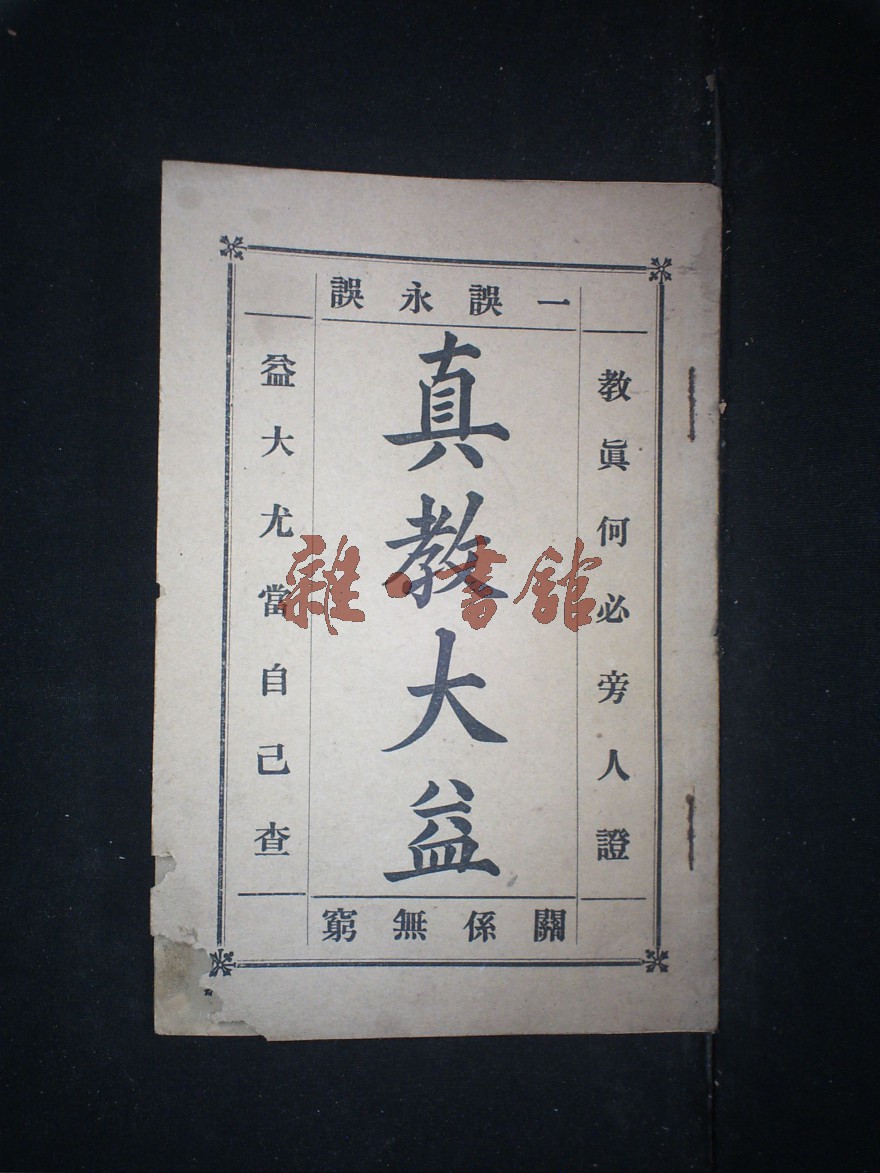 一誤永誤
教眞何必旁人證
真教大益
益大尤當自己查
關係無窮
雜·書館